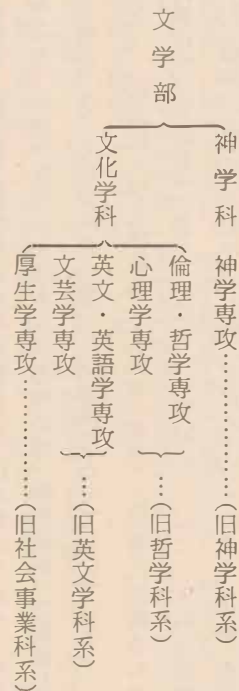 文学部
神学科　神学専攻……………………（旧神学科系）
文化学科
倫理・哲学専攻
心理学専攻
…（旧哲学科系）
英文・英語学専攻
文芸学専攻
…（旧英文学科系）
厚生学専攻…………（旧社会事業科系）